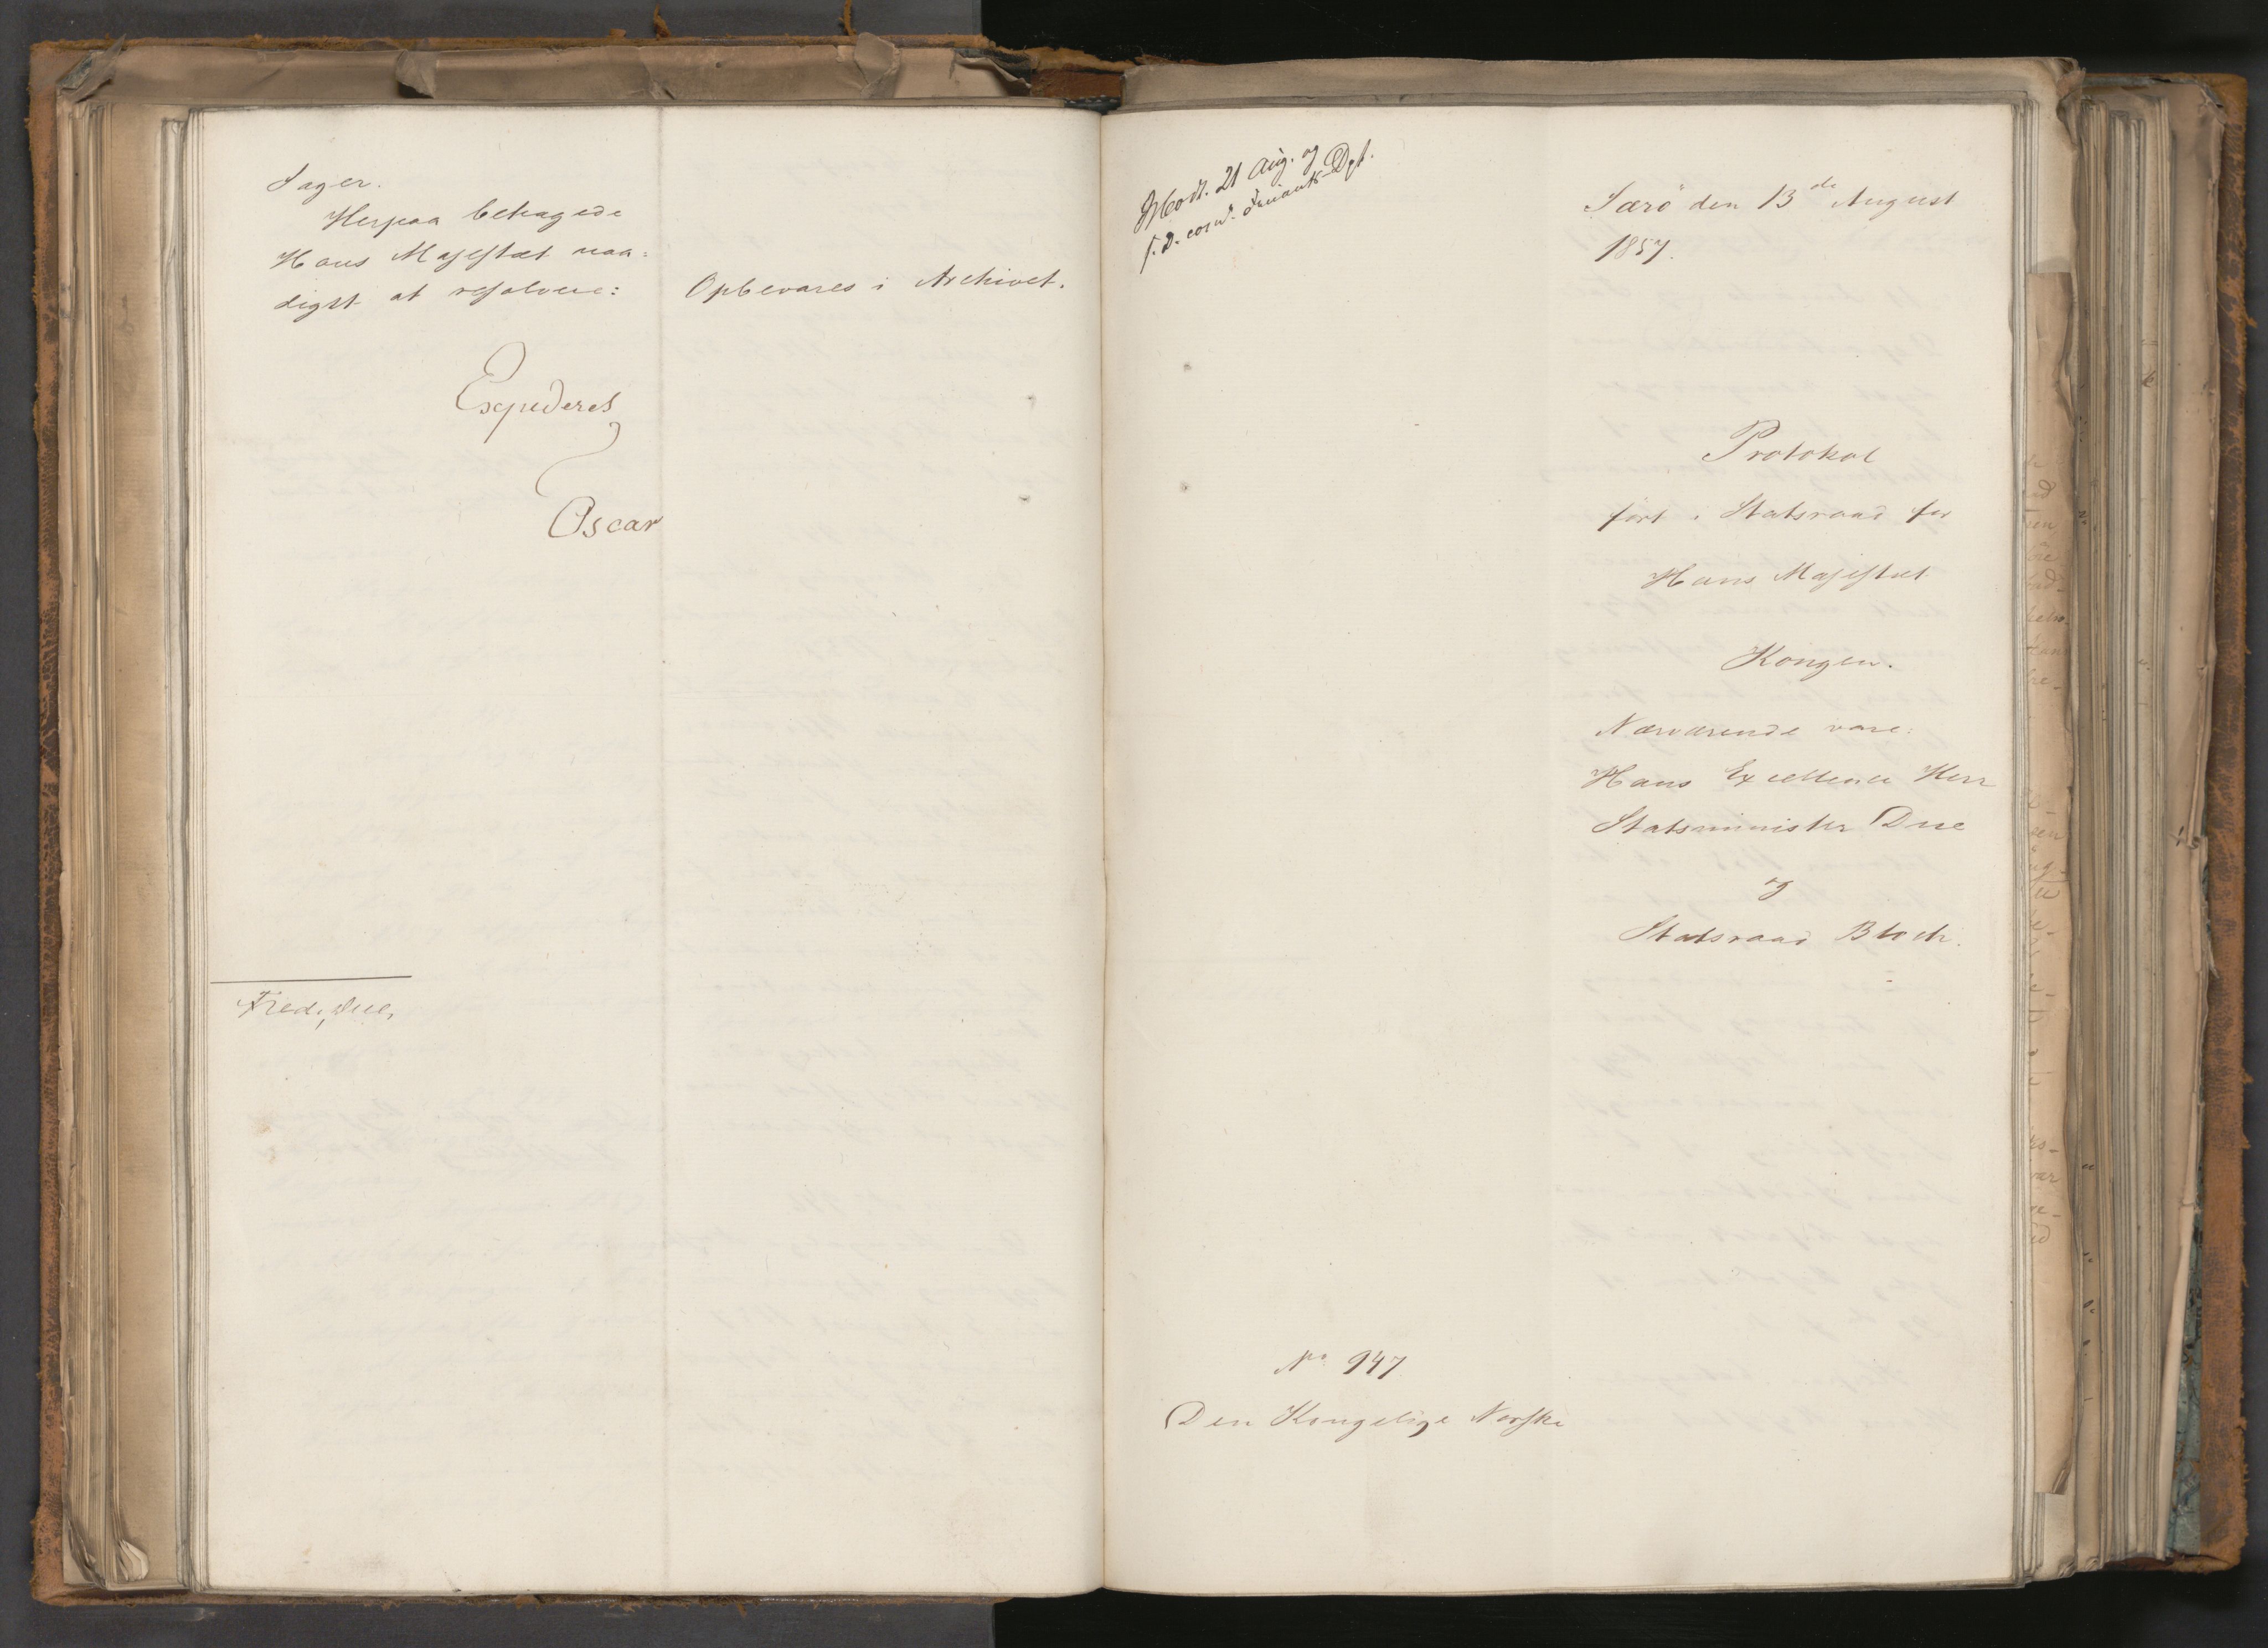 Sager.
Herpaa behagede
Hans Majestæt naa-
digst at resolvere:
Opbevares i Archivet.
Expederes
Oscar
Fred. Due.
Modt. 21 Aug. og
Dpt.
Særö den 13de August
1857.
Protokol
ført i Statsraad for
Hans Majestæt
Kongen.
Nærværende vare:
Hans Excellence Herr
Statsminister Due
og
Statsraad Bloch.
No 947
Den Kongelige Norske